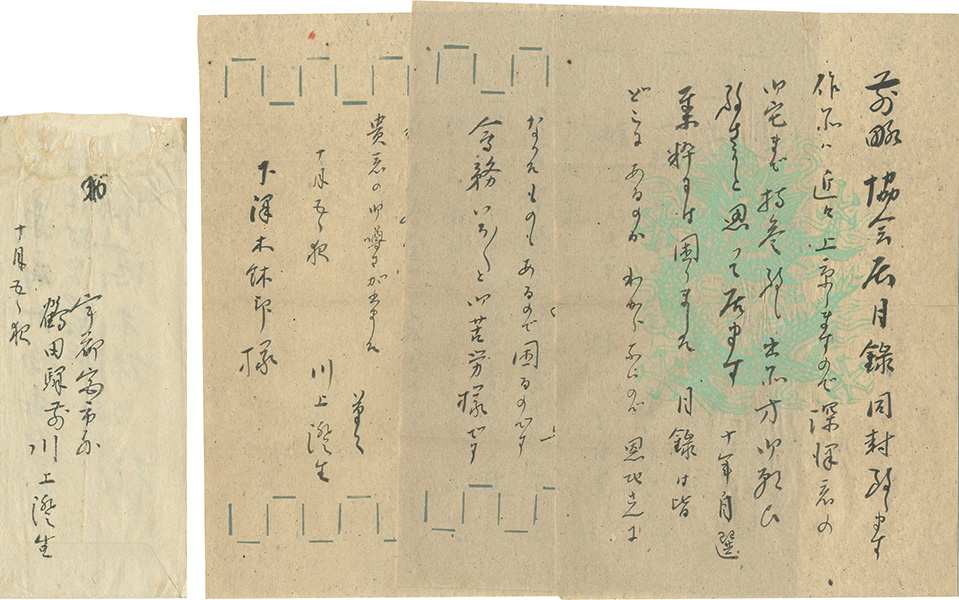 前略 協会展目録同封致します
作品は近々上京しますので深澤君の
御宅まで持参致し出品方御願ひ
致さうと思って居ます 十年自選
集粋には困りました 目録は皆
どこにあるのかわからないので 恩地兄に
なきものもあるので困るのです
會務いろ〱と御苦労様です
貴君の御噂が出ました
草々
十月五日夜 川上澄生
下澤木鉢郎様
宇都宮市外
鶴田驛前 川上澄生
十月五日夜